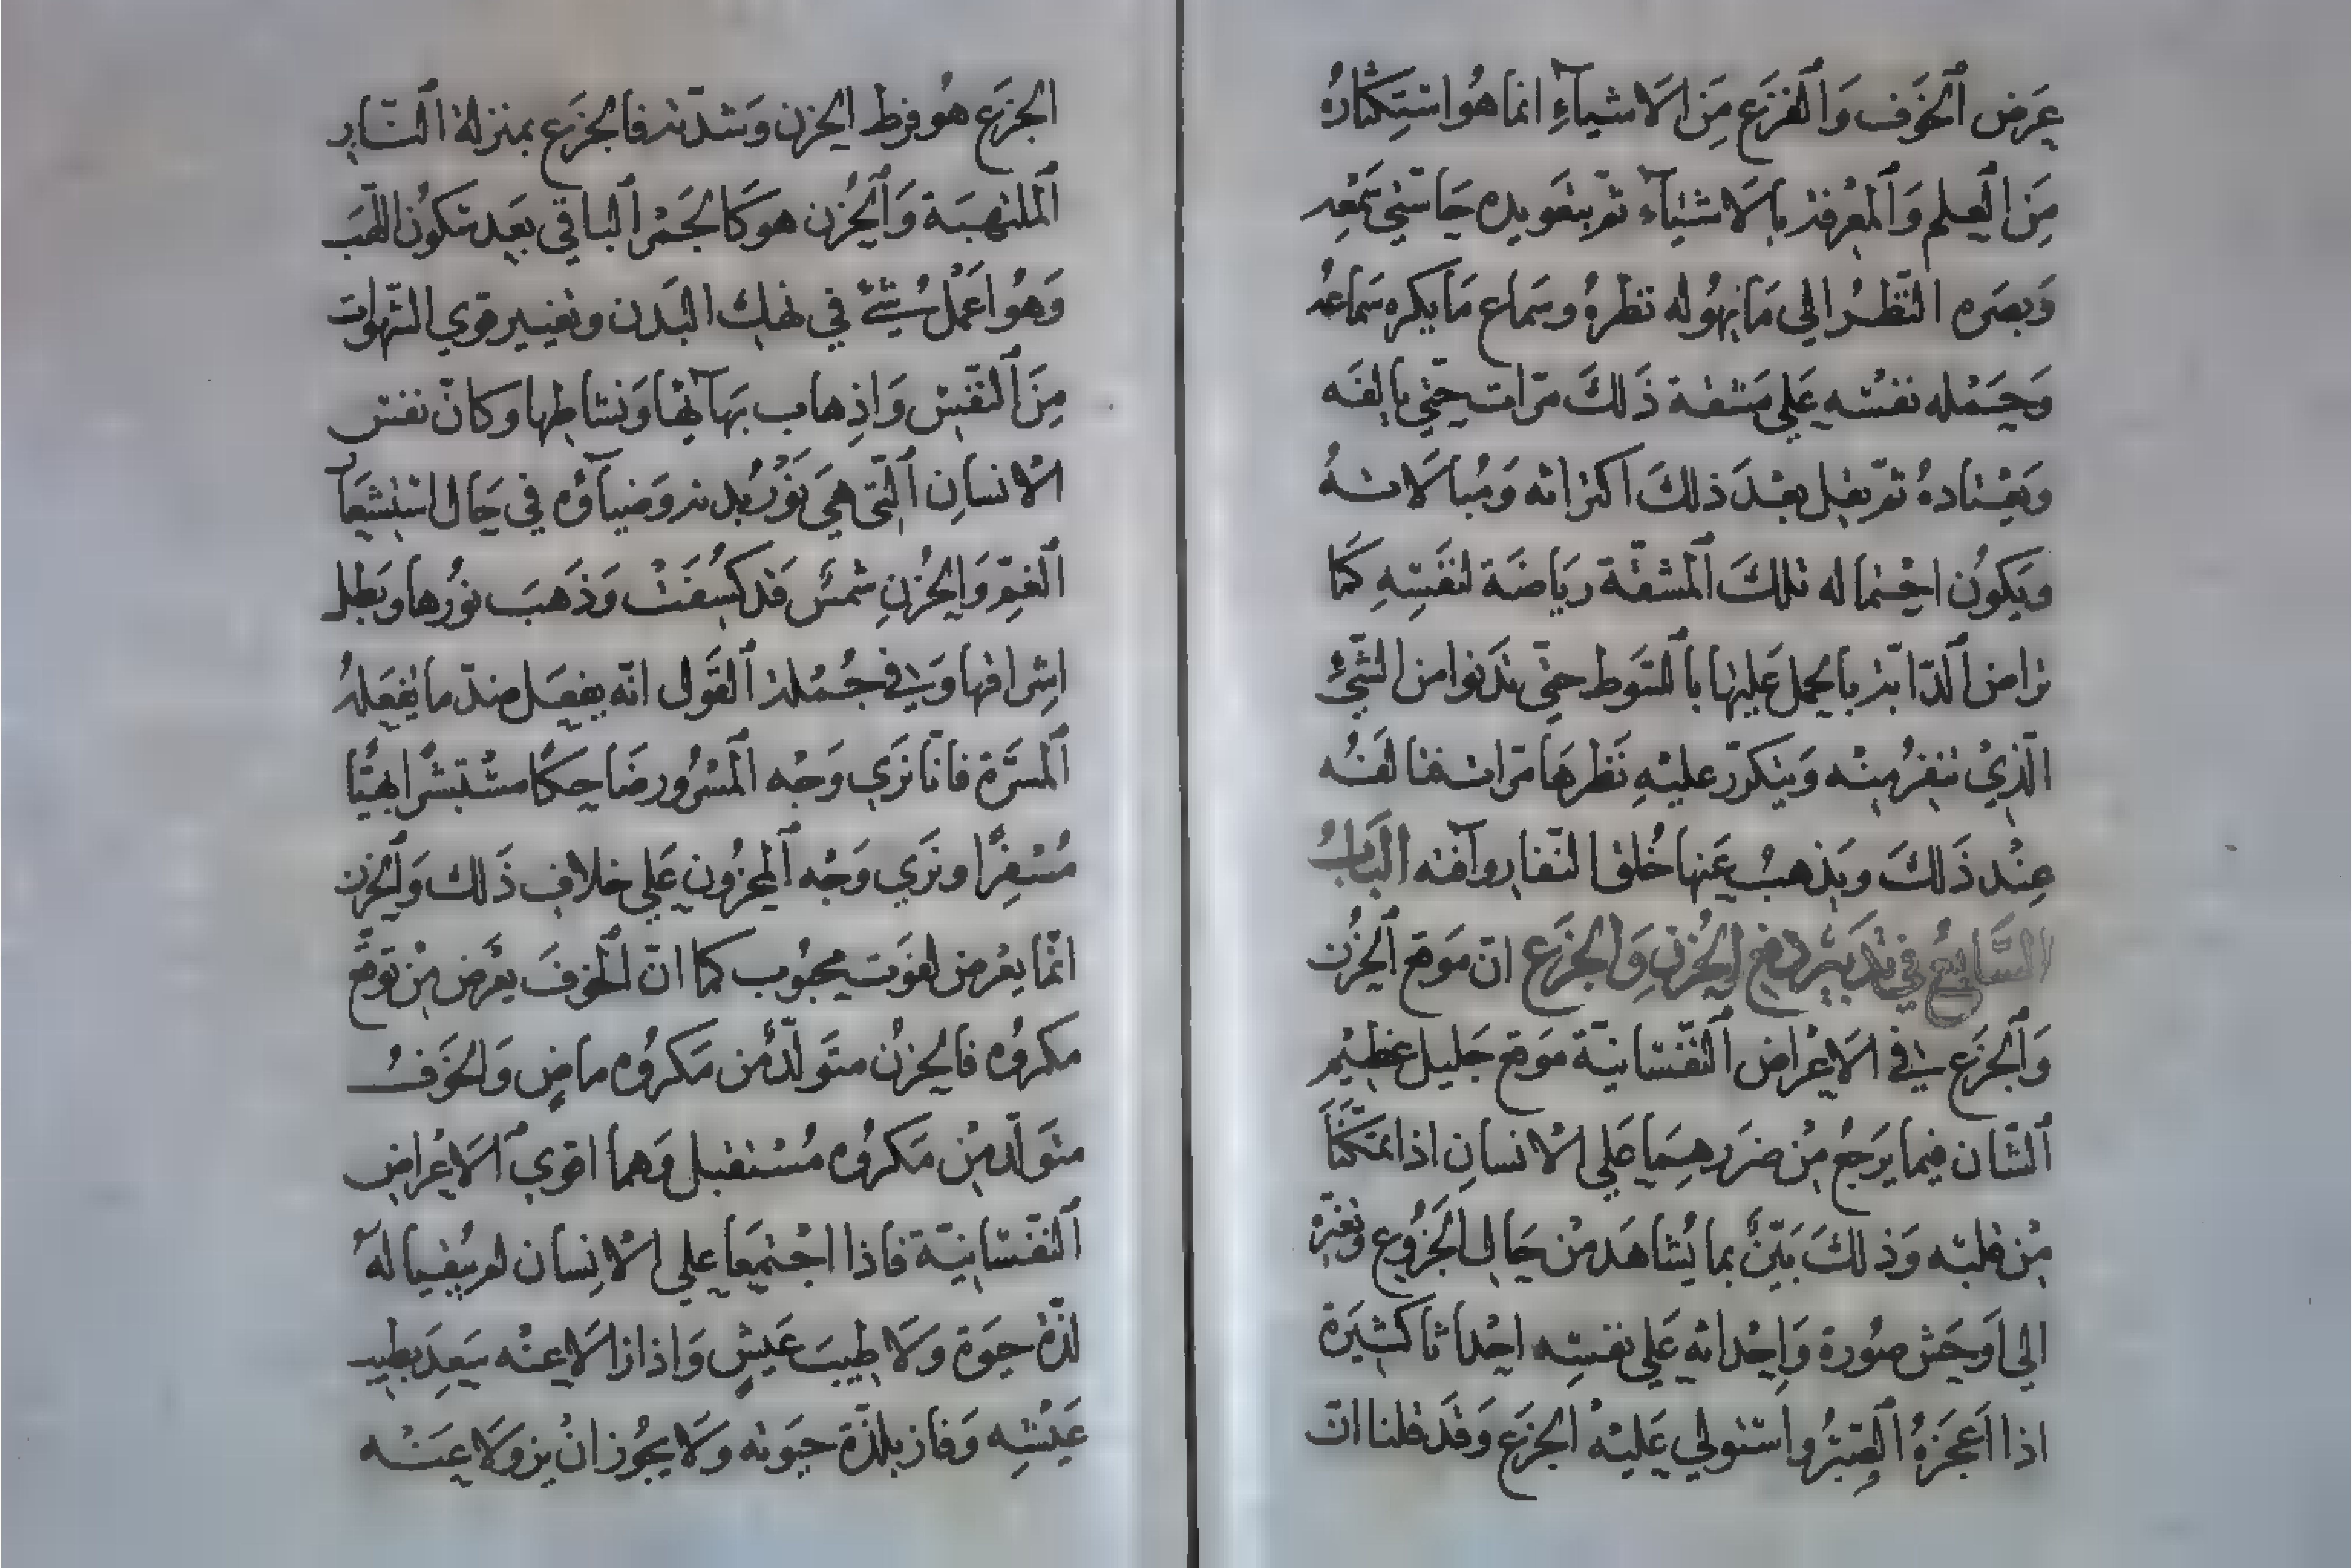 عَرَض ٱلخَوف وَٱلفَزَع مِنَ الاشيآءِ انما هو استِكثارُهُ
مِنَ العِلم وَٱلمَعرفة بالاشيآء ثم بتعويده حَاسّتي سَمعِه
وَبصَره النّظرُ الي مَا يَهُوله نَظرهُ وسَماع مَا يكره سَماعهُ
وَحَمله نفسُه عَلي مَشقة ذَلكَ مرّات حتّي يالفَه
وَيعتادهُ ثم يقل بعْدَ ذلكَ اكتراثه وَمُبالاتهُ
ويَكوُن احتماله تلكَ ٱلمشقّة ريَاضَة لنفسِهِ كما
تراض ٱلدّابّة بالحمل عَليْها بٱلسَّوط حتّي تدَنوا من الشّيءِ
الّذيْ تنفرُ مِنْه وَيتكررّ عليْهِ نَظرهَا مَرّات فتالفَُه
عِنْد ذَلكَ ويَذهبُ عَنها خُلق النّفار وآفته البَابُ
السَّابعُ في تدَبير دفع الحُزنِ وَالجَزَع انّ مَوقع ٱلحُزن
وَٱلجَزَع في الاعْراض ٱلنّفسَانيّة مَوقع جَليل عَظيْم
ٱلشّان فيما يَرجعُ منْ ضَرَرهِمَا عَلي الانسانِ اذا تمَكّنَا
مِنْ قلبْه وَذلكَ بَيّنٌ بما يُشاهَد منْ حَال الجَزُوع وتغيّرهِ
الي اَوحَش صُورة وَاِحْداثه عَلي نفسِه احْداثا كَثيَرة
اذا اَعجَزهُ ٱلصّبْرُ واستولي عَليْه ٱلجزَع وَقدَ قلنا انّ
الجزَع هُو فرط الحزن وَشدّته فالجزَع بمنزلة ٱلنّار
ٱلملتهبَة وَٱلحُزن هوَ كَالجَمْر ٱلباقي بعَد سَكُون اللهَب
وَهُو اَعْمَلُ شيْءٍ في نهك البَدن وتغيير قوي الشّهوات
مِنَ ٱلنّفس وَاذِهاب بَهآئها وَنشاطِها وكانّ نفس
الانسانِ ٱلّتي هيَ نوُْر بُدنه وَضيآؤه في حَال استشعَار
ٱلغمّ وَالحُزنِ شمسٌ قد كسُفَتْ وَذَهبَ نوُرها وبَطل
اشِراقها وَفي جُملة ٱلقَول انّه يفعَل ضدّ ما يفعَلهُ
ٱلمسرَّة فانا نَرَي وَجْه ٱلمسْرُور ضَاحِكًا مسْتبشرًا بَهيًّا
مُسْفِرًا ونَرَي وَجْه ٱلمحزُون عَلي خلاف ذَلك وَٱلحزن
انّما يعْرض لفوَت محبُوب كما انّ ٱلخوفَ يعْرَض منْ توَقّع
مكروُه فالحزنُ متوَلّدٌ من مَكروُه ماضٍ وَالخوَفُ
متوَلّد منْ مَكروُه مُسْتقبل وَهما اقوي الاعْراض
ٱلنّفسَانيّة فاذا اجْتمَعا علي الانِسان لم يبُقيا لهُ
لذّة حيَوة وَلا طِيبَ عَيشٍ وَاذا زالا عنْه سَعِدَ بطيب
عَيْشِه وَفاز بلذّة حيَوته وَلا يجُوز انْ يزولا عَنْه